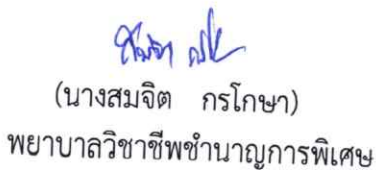 (นางสมจิต กรโกษา)
พยาบาลวิชาชีพชำนาญการพิเศษ